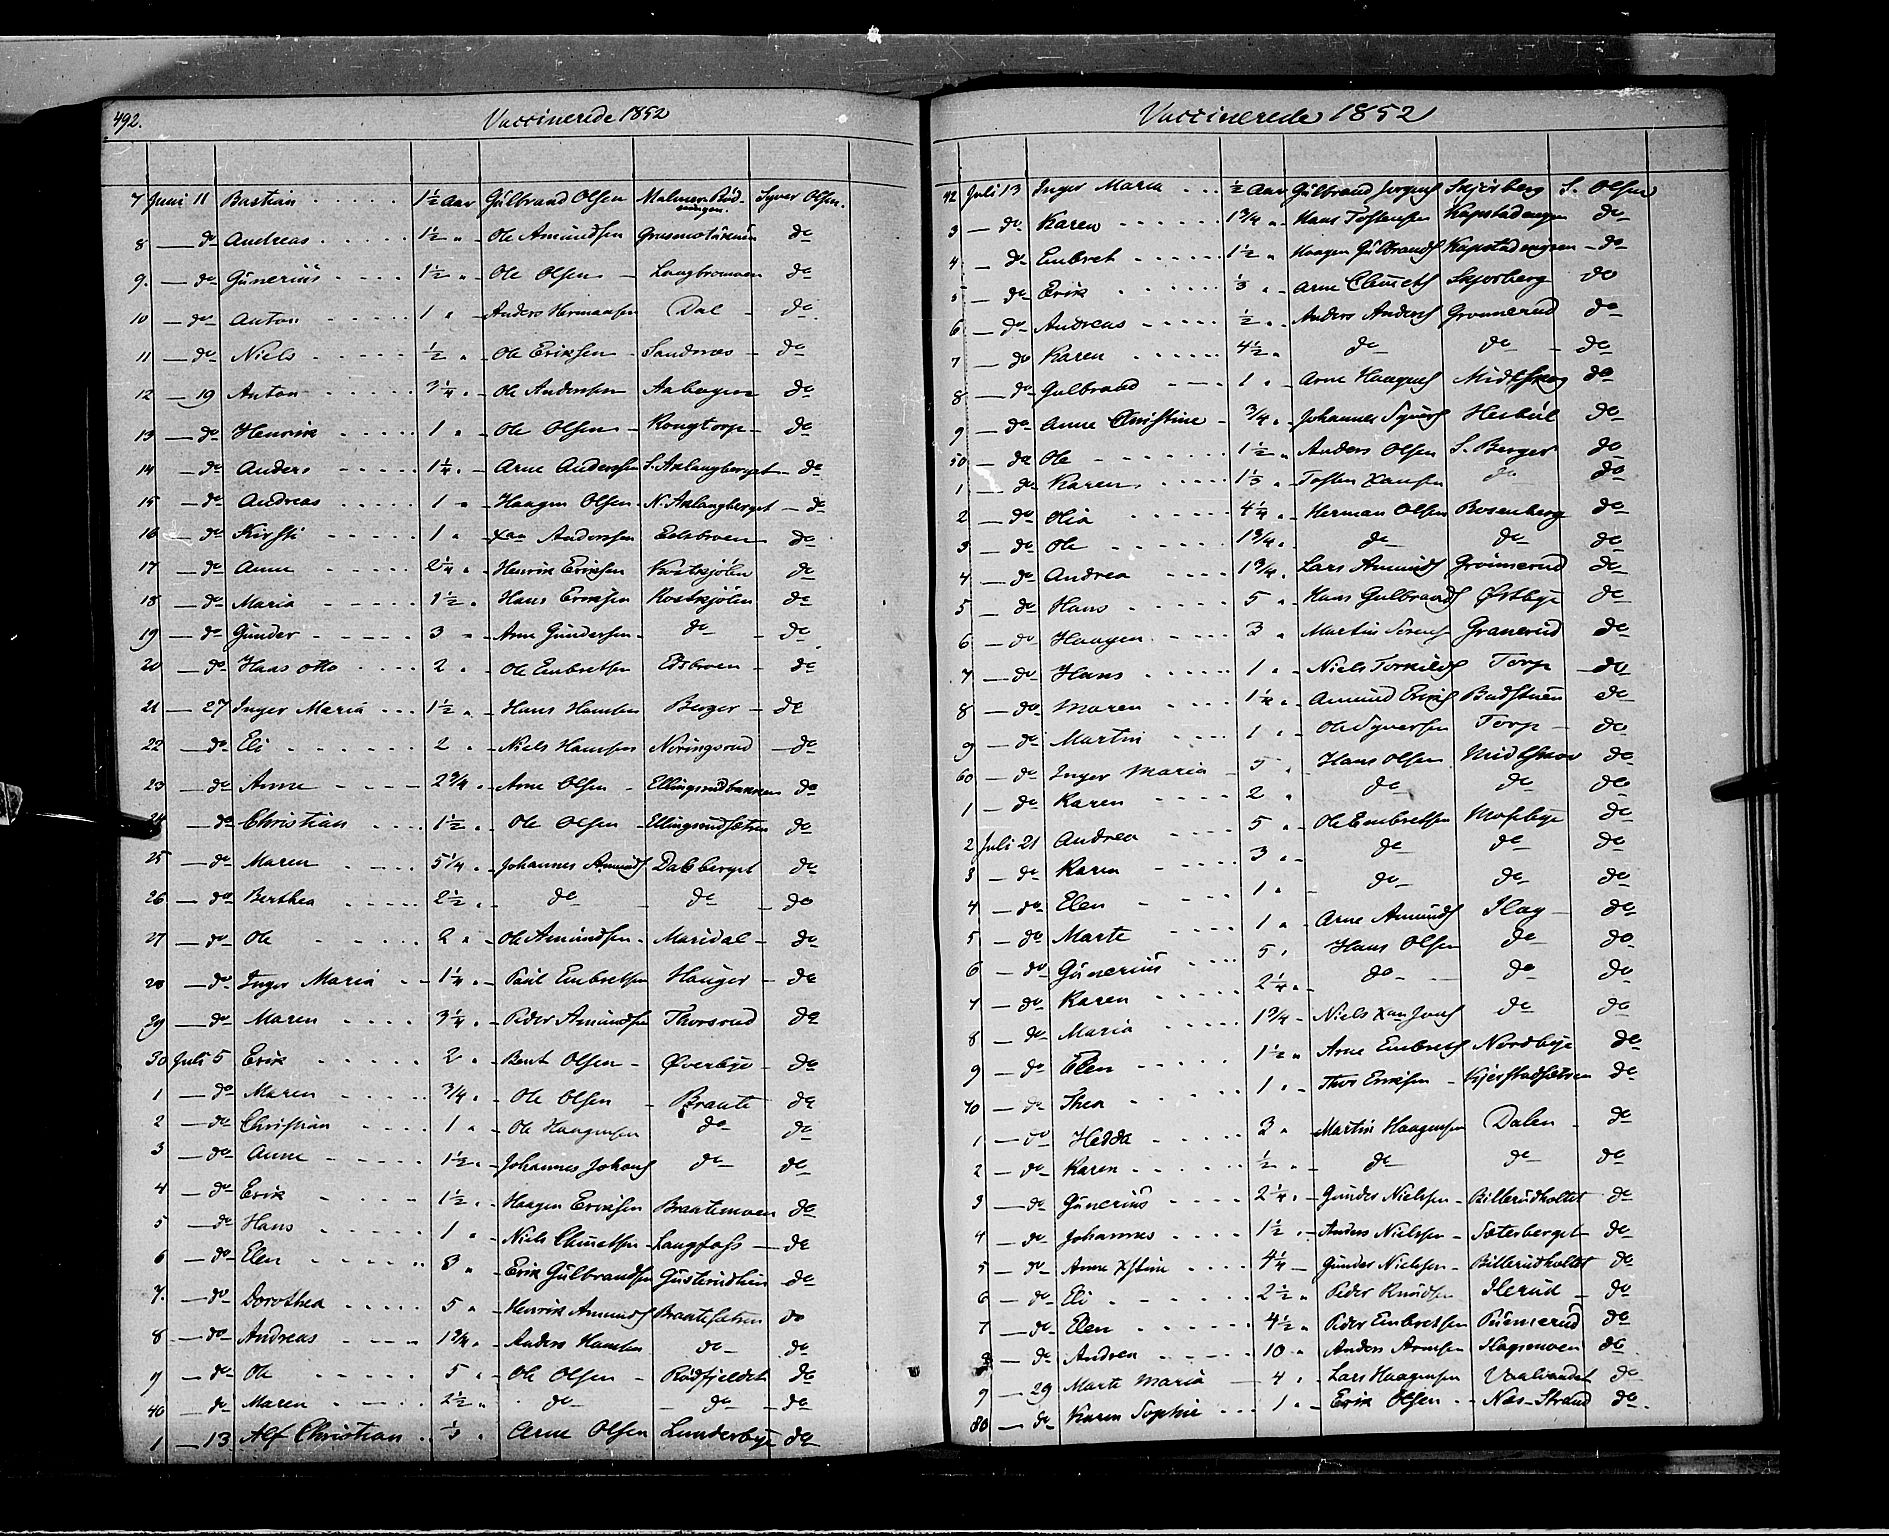 492.
Vaccinerede 1852
7 Juni 11 Bastian 1½ Aar Gulbrand Olsen Malmer Rød- Syver Olsen.
ningen.
8 — do Andreas 1½ " Ole Amundsen do
9. — do Gunerius 1½ " Ole Olsen Langbromoen do
10 — do Anton 1 " Anders Hermansen Dal do
11 — do Niels ½ " Ole Eriksen Sandnæs do
12 — 19 Anton 3¼ " Ole Anderssen Aabogen do
13 — do Henrik 1 " Ole Olsen Kongtorp do
14 — do Anders 1¼ " Arne Anderssen S. Aklangberget do
15 — do Andreas 1 " Haagen Olsen N. Aklangberget do
16 — do Kirsti 1 " Xan Anderssen Edsbroen do
17 — do Anne 2¼ " Henrik Eriksen Kostkjølen do
18 — do Maria 1½ " Hans Eriksen Kostkjølen do
19 — do Gunder 3 " Arne Gundersen do do
20 — do Hans Otto 2 " Ole Embretsen Edsbroen do
21 — 27 Inger Maria 1½ " Hans Hansen Berger do
22 — do Eli 2 " Niels Hansen Nøringsrud do
23 — do Anne 2¾ " Arne Olsen Ellingsrudbakken do
24 — do Christian 1½ " Ole Olsen Ellingsrudsætren do
25 — do Maren 5¼ " Johannes Amunds Dalsberget do
26 — do Berthea 2½ " do do do
27 — do Ole 2 " Ole Amundsen Maridal do
28 — do Inger Maria 1¼ " Paul Embretsen Hauger do
29 — do Maren 3¼ " Peder Amundsen Thorsrud do
30 Juli 5 Erik 2 " Bent Olsen Øverbye do
1 — do Maren ¾ " Ole Olsen Braate do
2 — do Christian 1 " Ole Haagensen do do
3 — do Anne 1½ " Johannes Johans do do
4 — do Erik 1½ " Haagen Eriksen Braatemoen do
5 — do Hans 1 " Niels Clmetsen Langfoss do
6 — do Elen 3 " Erik Gulbrandsen Gusterudhien do
7. — do Dorothea 5 " Henrik Amunds Braatesætren do
8 — do Andreas 1¾ " Anders Hansen do do
9 — do Ole 5 " Ole Olsen Rødfjeldet do
40 — do Maren 2½ " do do do
1 — 13 Alf Christian ⅓ " Arne Olsen Lunderbye do
Vaccinerede 1852
42 Juli 13 Inger Maria ½ Aar Gulbrand Jørgens Skjøsberg S. Olsen
3 — do Karen 1¾ " Hans Tostensen Kapstadengen do
4 — do Embret 1½ " Haagen Gulbrands Kapstadengen do
5 — do Erik ⅓ " Arne Clmets Skjøsberg do
6 — do Andreas ½ " Anders Anders Grønnerud do
7 — do Karen 4½ " do do do
8 — do Gulbrand 1 " Arne Haagens Midtskog do
9 — do Anne Christine ¾ " Johannes Syvers Herbül do
50 — do Ole 1½ " Anders Olsen S. Berger do
1 — do Karen 1⅓ " Tosten Hansen do do
2 — do Olia 4¼ " Herman Olsen Bosenberg do
3 — do Ole 1¾ " do do do
4 — do Andrea 1¾ " Lars Amunds Grønnerud do
5 — do Hans 5 " Hans Gulbrands Østbye do
6 — do Haagen 3 " Martin Sørens Granerud do
7 — do Hans 1 " Niels Torkilds Torp do
8 — do Maren 1¼ " Amund Eriks Badstuen do
9 — do Martin 1 " Ole Syversen Torp do
60 — do Inger Maria 5 " Hans Olsen Midtskov do
1 — do Karen 2 " do do do
2 Juli 21 Andrea 5 " Ole Embretsen Mosebye do
3 — do Karen 3 " do do do
4 — do Elen 1 " do do do
5 — do Marte 1 " Arne Amunds Ilag do
6 — do Gunerius 5 " Hans Olsen do do
7 — do Karen 2¼ " do do do
8 — do Maria 1¾ Niels do do
9 — do Elen 1½ " Arne Embrets Nordbye do
70 — do Thea 1 " Thor Eriksen Kjerstadsætren do
1 — do Hedda 3 " Martin Haagensen Dalen do
2 — do Karen ½ " do do do
3 — do Gunerius 2¼ " Gunder Nielsen Billerudholtet do
4 — do Johannes 1½ " Anders Nielsen Sæterberget do
5 — do Anne Xstine 4¼ Gunder Nielsen Billerudholtet do
6 — do Eli 2½ " Peder Knudsen Ilerud do
7 — do Elen 4½ " Peder Embretsen do
8 — do Andrea 10 " Anders Arnesen Ilagsmoen do
9 — 29 Marte Maria 4 " Lars Haagensen do
80 — do Karen Sophie 1 " Erik Olsen Næs-Strand do